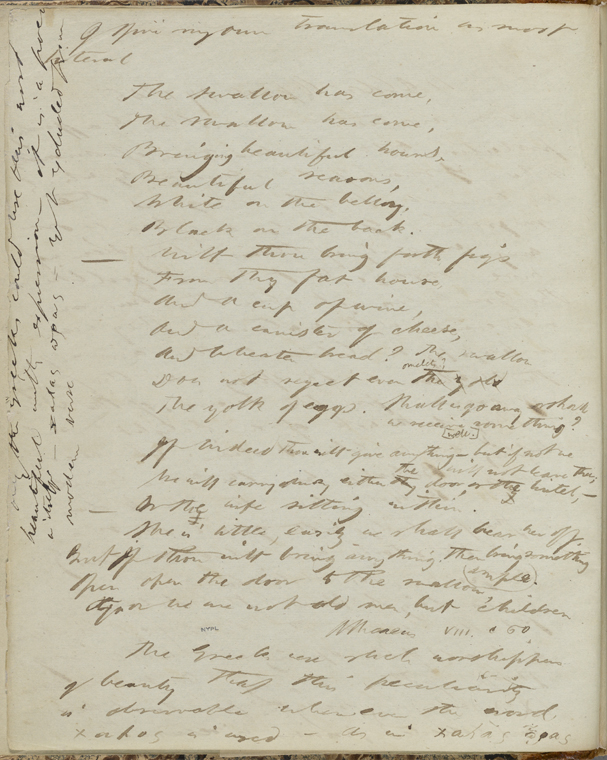 I give my own translation as most
literal
The swallow has come,
The swallow has come,
Bringing beautiful hours,
Beautiful seasons,
White on the belley,
Black on the back.
Wilt thou bring forth figs
From thy fat house,
And a cup of wine,
And a canister of cheese,
And wheaten bread? The swallow
omelet
Does not reject even the yolk
The yolk of eggs. Shall we go away or shall
we receive something?
well.
If indeed thou wilt give anything - but if not we
will not leave thee,
We will carry away either thy door, or the lintel, -
Or the wife sitting within.
She is little, easily we shall bear her off.
But if thou wilt bring anything. Then bring something
ample.
Open open the door to the swallow,
For we are not old men, but children
Athenaeus VIII. c 60
NYPL
The Greeks were such worshippers
of beauty that this peculiarity
is observable whenever the word
καλος is used - As in καλας ωρας
only the Greeks could use this word
beautiful with expression - it is a poem
in itself - καλας ωρας - but excluded from
modern verse